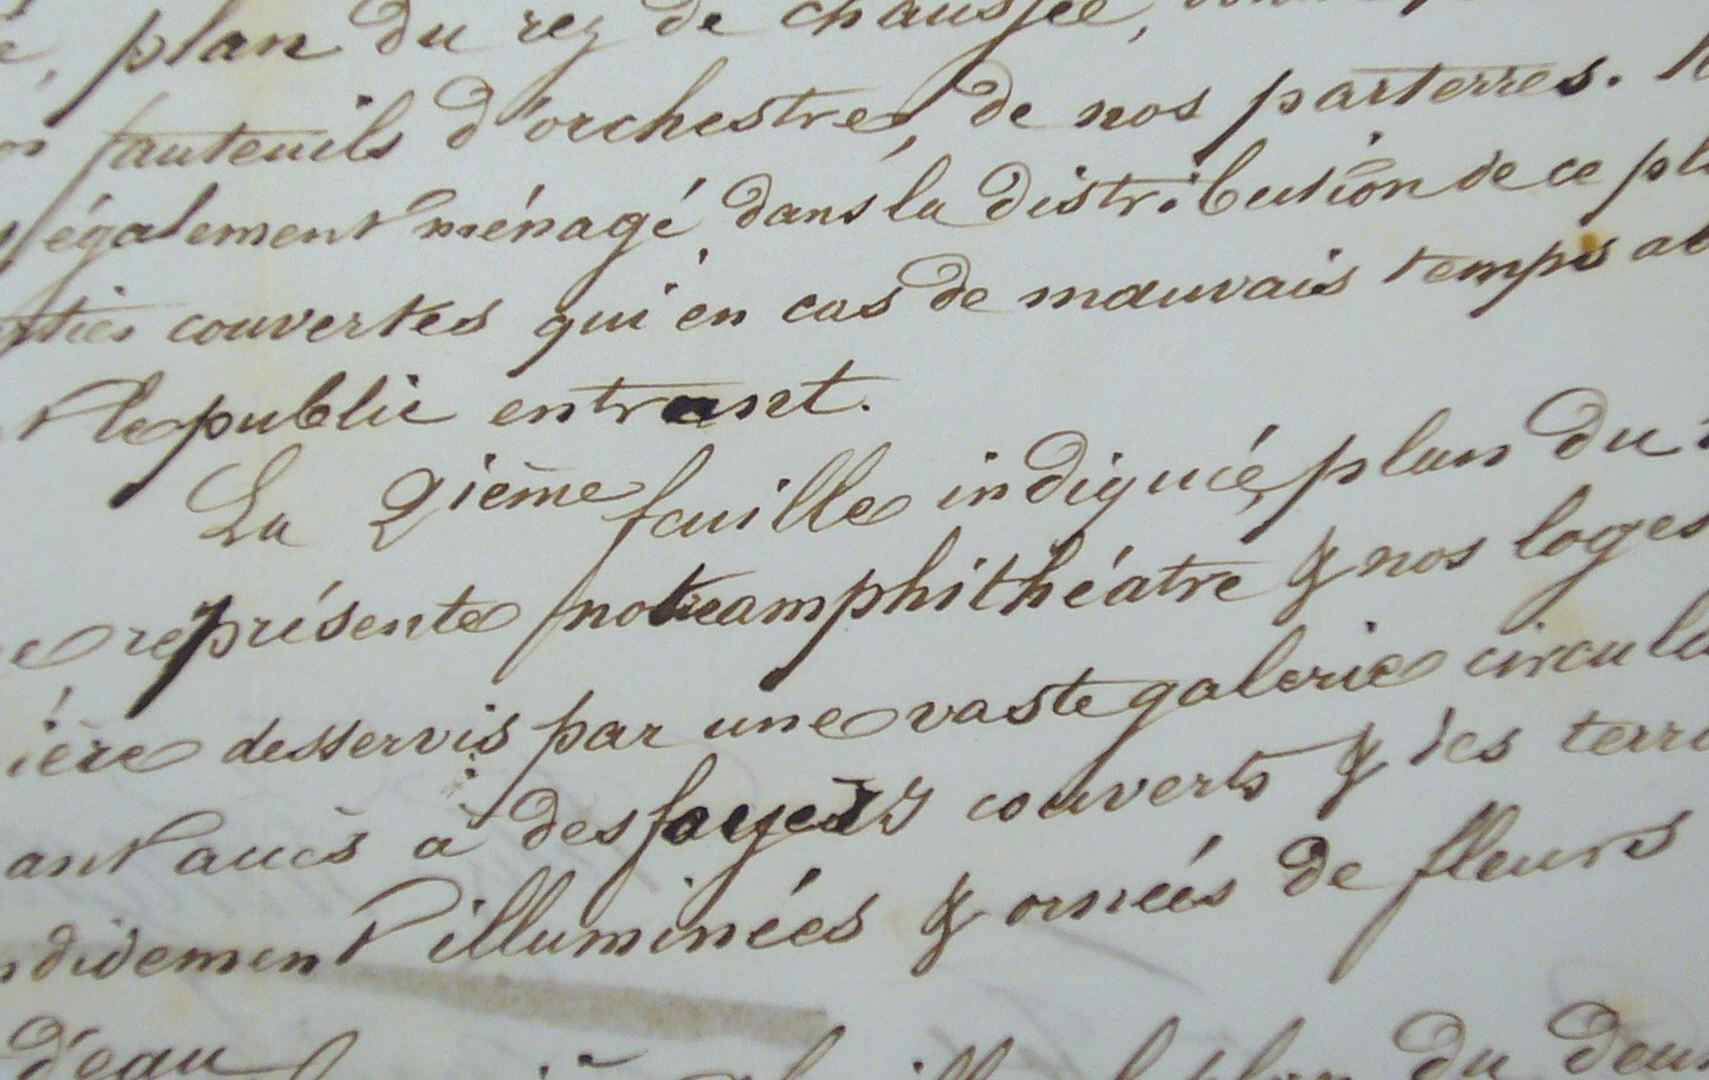 plan du rez de chaussée,
fauteuils d'orchestre, de nos parterres.
également ménagé dans la distribution de ce pl
couvertes qui en cas de mauvais temps ab
le public entrant.
La 2ième feuille indiquée, plan du
représente notre amphithéatre & nos loges
ière desservis par une vaste galerie circula
ant accès à des foyers couverts & des terra
ndidement illuminées & ornées de fleurs
d'eau